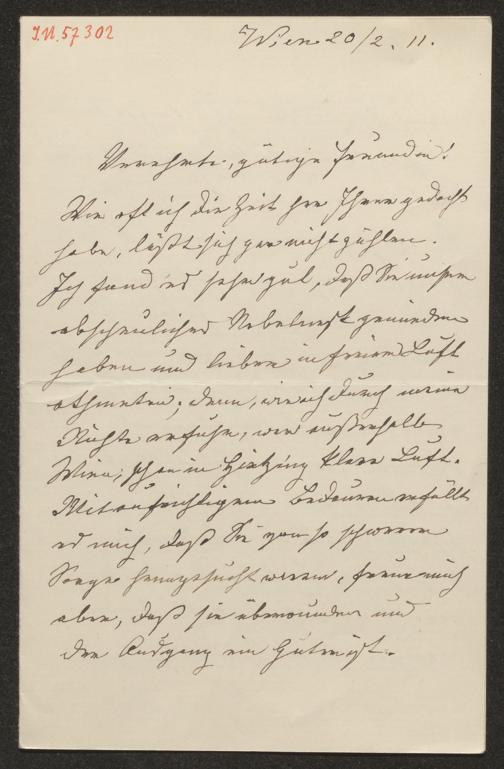 I.N. 57302
Wien 20/2. 11.
Verehrte, gütige Freundin!
Wie oft ich die Zeit her Ihrer gedacht
habe, läßt sich gar nicht zählen.
Ich fand es sehr gut, daß Sie unser
abscheuliches Nebelnest gemieden
haben und lieber in freier Luft
athmeten; denn, wie ich durch meine
Nichte erfuhr, war außerhalb
Wien, schon in Hietzing klare Luft.
Mit aufrichtigem Bedauern erfüllt
es mich, daß Sie von so schweren
Sorgen heimgesucht waren, freue mich
aber, daß sie überwunden und
der Ausgang ein guter ist.